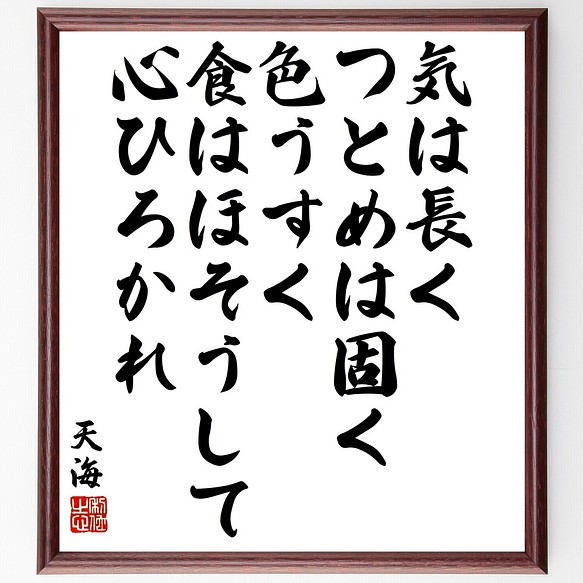 気は長く
つとめは固く
色うすく
食はほそうして
心ひろかれ
天海